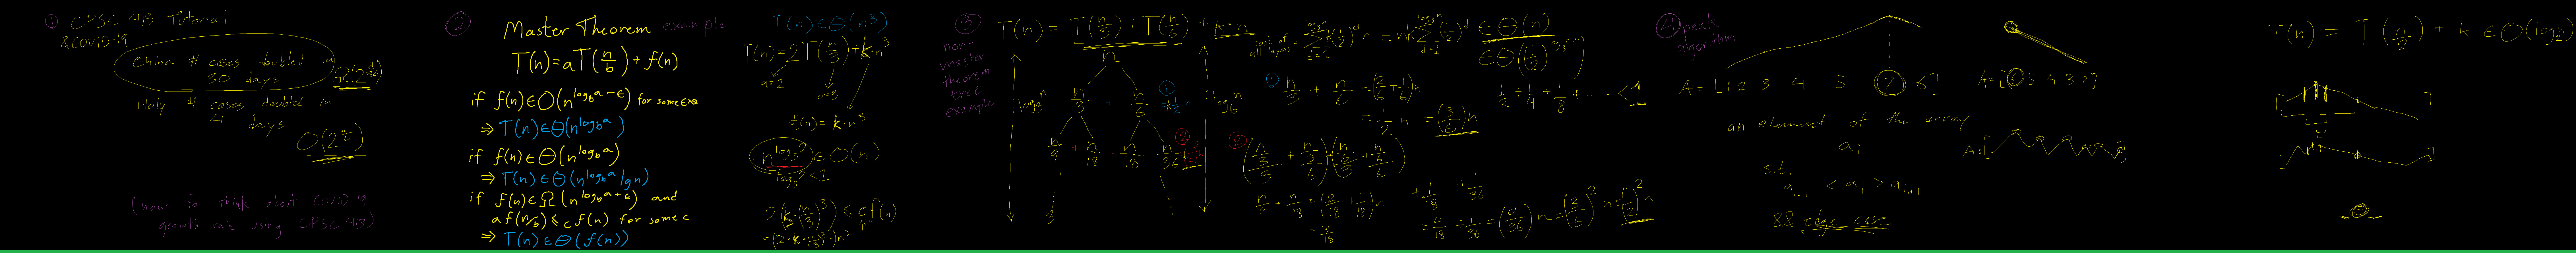 ① CPSC 413 Tutorial
& COVID-19
China # cases doubled in
30 days
Ω(2^(d/30))
Italy # cases doubled in
4 days
O(2^(d/4))
(how to think about COVID-19
growth rate using CPSC 413)
② Master Theorem example
T(n) = aT(n/b) + f(n)
if f(n) ∈ O(n^(log_b a - ε)) for some ε>0
⇒ T(n) ∈ Θ(n^(log_b a))
if f(n) ∈ Θ(n^(log_b a))
⇒ T(n) ∈ Θ(n^(log_b a) lg n)
if f(n) ∈ Ω(n^(log_b a + ε)) and
a f(n/b) ≤ c f(n) for some c
⇒ T(n) ∈ Θ(f(n))
T(n) ∈ Θ(n³)
T(n) = 2T(n/3) + k·n³
a=2
b=3
f(n) = k·n³
n^(log₃2) ∈ O(n)
log₃2 < 1
2(k·(n/3)³) ≤ c f(n)
= (2·k·(1/3)³)n³
③ T(n) = T(n/3) + T(n/6) + k·n
non-
master
theorem
tree
example
n
n/3 + n/6
① k½n
n/9 + n/18 + n/18 + n/36
②
3
log₃n
log₆n
cost of all layers = Σ_(d=1)^(log₃n) k(1/2)^d n = nk Σ_(d=1)^(log₃n) (1/2)^d ∈ Θ(n)
∈ Θ((1/2)^(log₃n+1))
① n/3 + n/6 = (2/6 + 1/6)n
= 1/2 n = (3/6)n
1/2 + 1/4 + 1/8 + ···· < 1
② (n/3/3 + n/3/6) + (n/6/3 + n/6/6)
n/9 + n/18 = (2/18 + 1/18)n
= 3/18
+ 1/18 + 1/36
= 4/18 + 1/36 = (9/36)n = (3/6)² n = (1/2)² n
④ peak
algorithm
A = [1 2 3 4 5 7 6]
an element of the array
a_i
s.t.
a_(i-1) < a_i > a_(i+1)
&& edge case
A = [6 5 4 3 2]
A: [ ]
T(n) = T(n/2) + k ∈ Θ(log₂n)
[ ]
[ ]